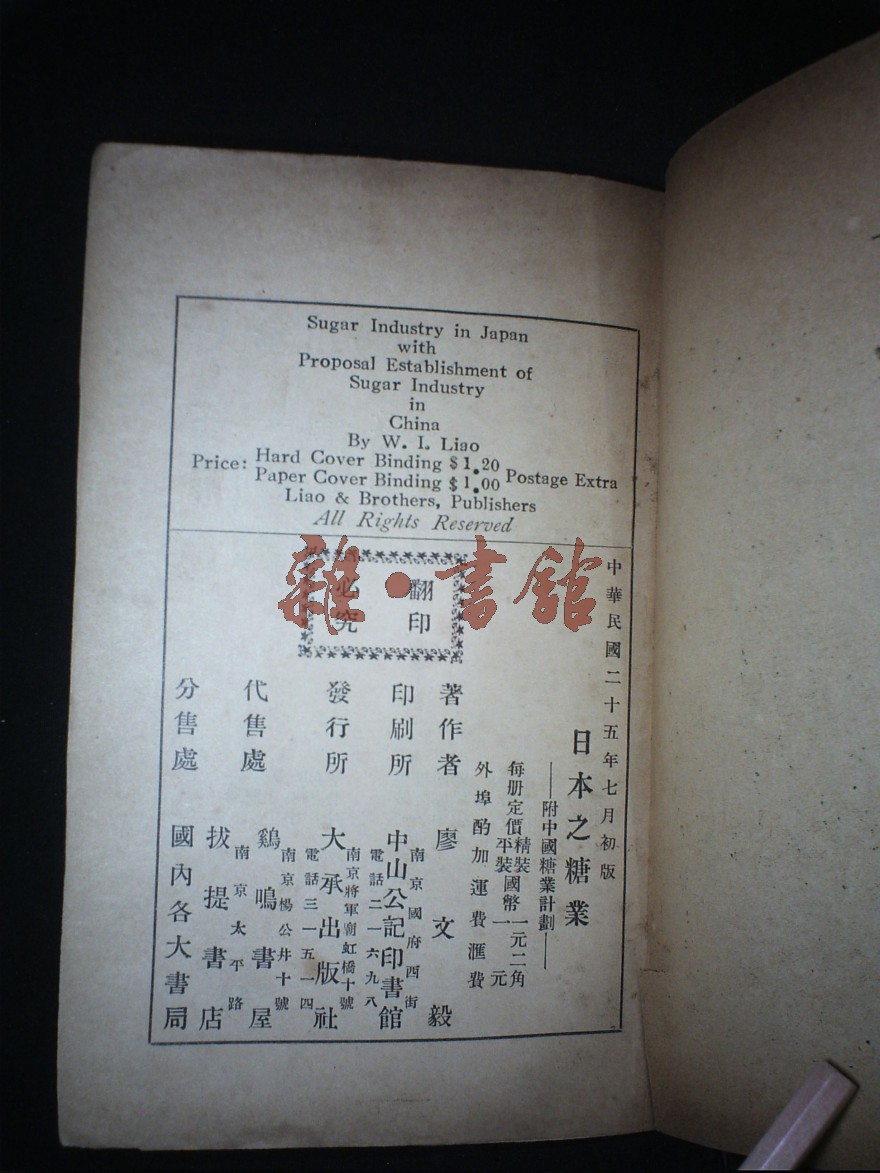 Sugar Industry in Japan
with
Proposal Establishment of
Sugar Industry
in
China
By W. I. Liao
Price: Hard Cover Binding $1.20
Paper Cover Binding $1.00 Postage Extra
Liao & Brothers, Publishers
All Rights Reserved
雜·書館
翻印
必究
中華民國二十五年七月初版
日本之糖業
——附中國糖業計劃——
每册定價精裝國幣一元二角
平裝國幣一元
外埠酌加運費滙費
著作者 廖文毅
印刷所 中山公記印書館
南京國府西街
電話二一六九八
發行所 大承出版社
南京將軍廟虹橋十號
電話三一五一四
代售處 鷄鳴書屋
南京楊公井十號
拔提書店
南京太平路
分售處 國內各大書局